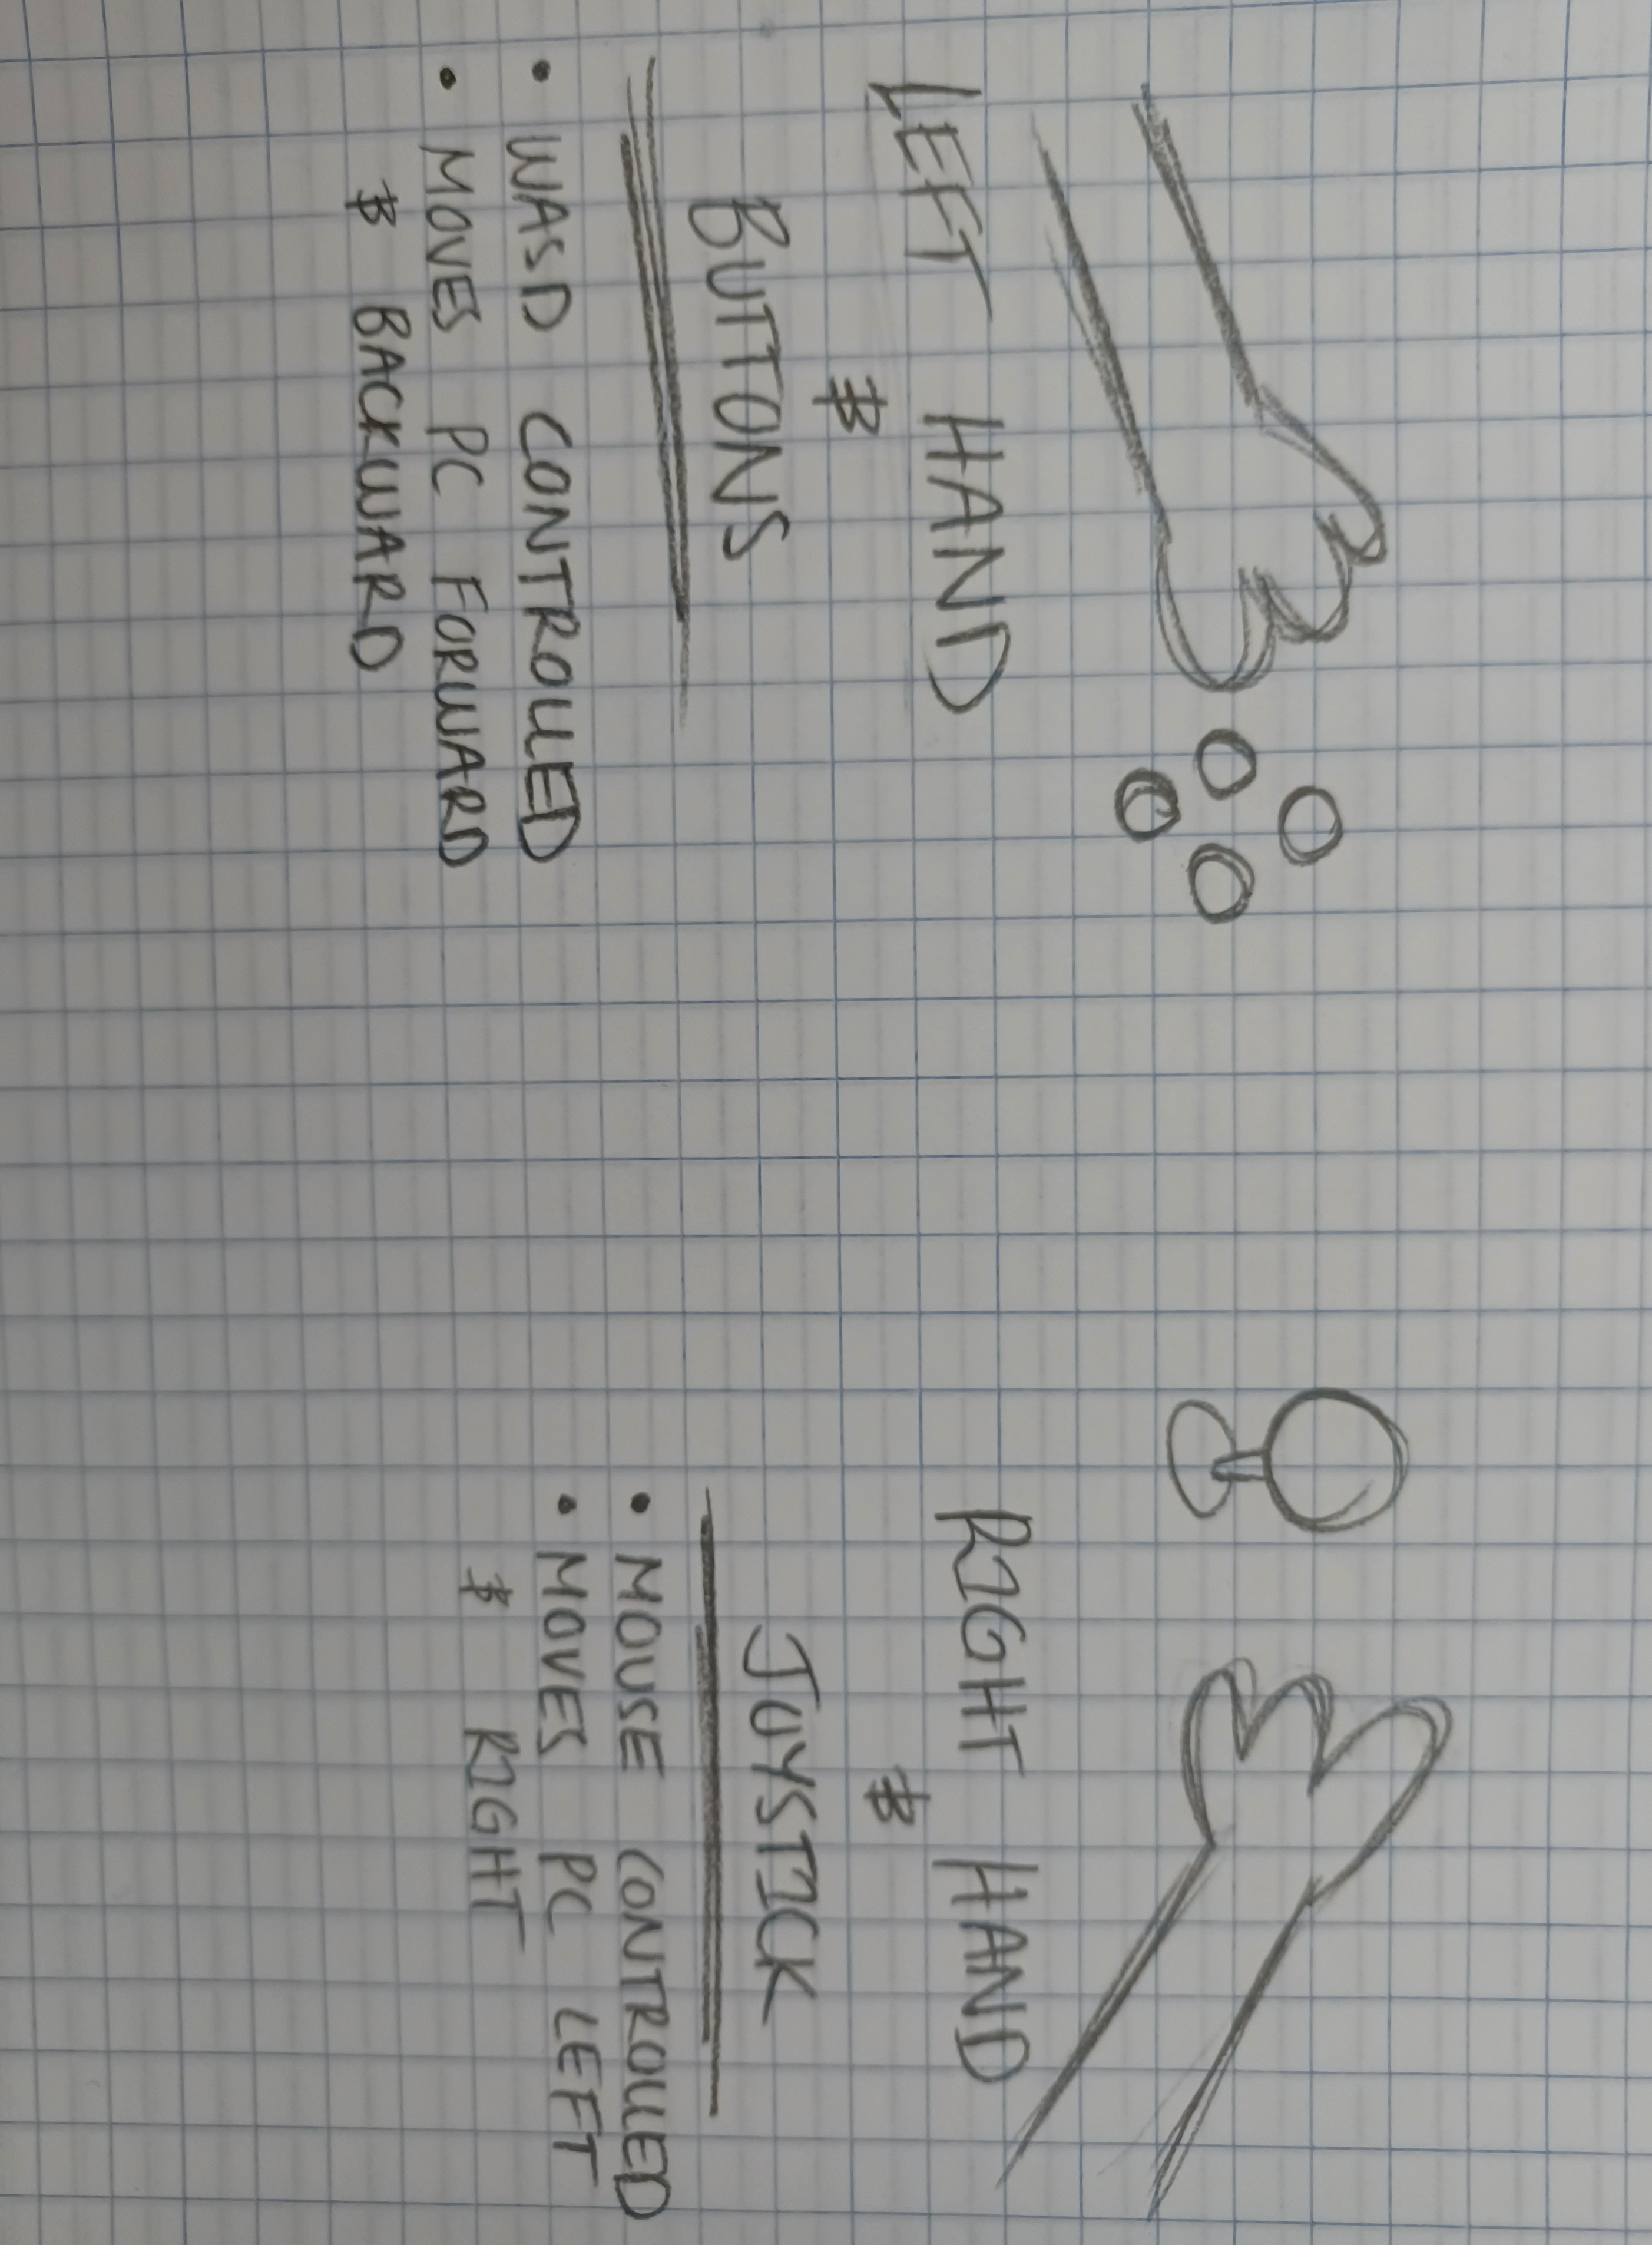 LEFT HAND
&
BUTTONS
• WASD CONTROLLED
• MOVES PC FORWARD
& BACKWARD
RIGHT HAND
&
JOYSTICK
• MOUSE CONTROLLED
• MOVES PC LEFT
& RIGHT